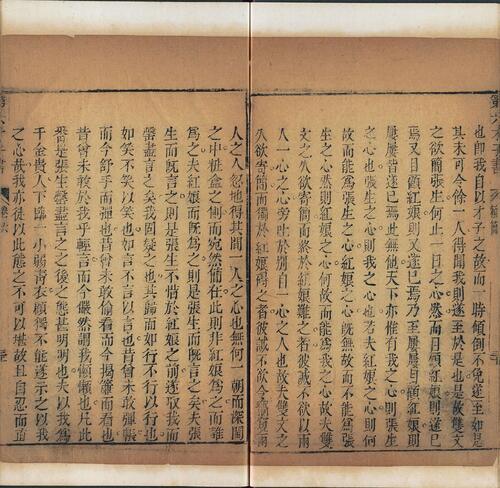 第六才子書
也即我自以才子之故而一時傾倒不免遂至如是
其未可令餘一人得聞我則遂至於是也是故雙文
之欲簡張生何止一日之心然而目顧紅娘則遂已
焉又日顧紅娘則又遂已焉乃至屢屢目顧紅娘則
屢屢皆遂已焉此無他天下亦惟有我之心則張生
之心也張生之心則我之心也若夫紅娘之心則何
故而能為張生之心紅娘之心既無故而不能為張
生之心然則紅娘之心何故而能為我之心故夫雙
文之久欲寄簡而終於紅娘難之者彼誠不欲以兩
人一心之心旁吐於別自一人之心也故夫雙文之
久欲寄簡而獨於紅娘碍之者彼誠不欲令竊窺兩
人之人忽地得其間一人之心也無何一朝而深閨
之中粧盒之側而宛然簡在此則非紅娘為之而誰
為之夫紅娘而既為之則是張生而既言之矣夫張
生而既言之則是張生不惜於紅娘之前遂取我而
罄盡言之矣我固疑之也其歸而如行不行以行也
如笑不笑以笑也如言不言以言也昔曾未敢彈帳
而今舒手而彈也昔曾未敢偷看而今揭簾而看也
昔曾未敢於我乎輕言而今儼然謂我懶懶也凡此
悉是張生罄盡言之之後之態甚明明也夫以我為
千金貴人下臨一小弱青衣顧獨不能遂示之以我
之心哉我亦徒以此態之不可以堪故且自忍而直
第六才子書
卷六